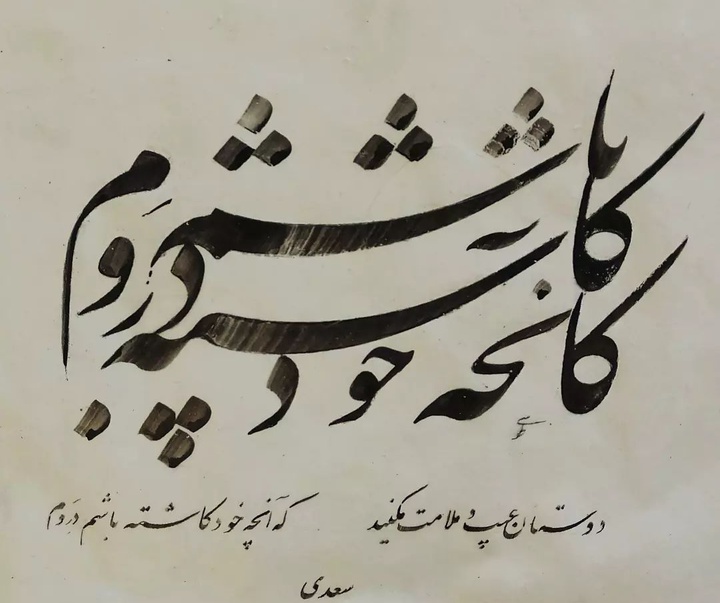 کآنچه خود کاشته باشم دروم
دوستان عیب و ملامت مکنید که آنچه خود کاشته باشم دروم
سعدی